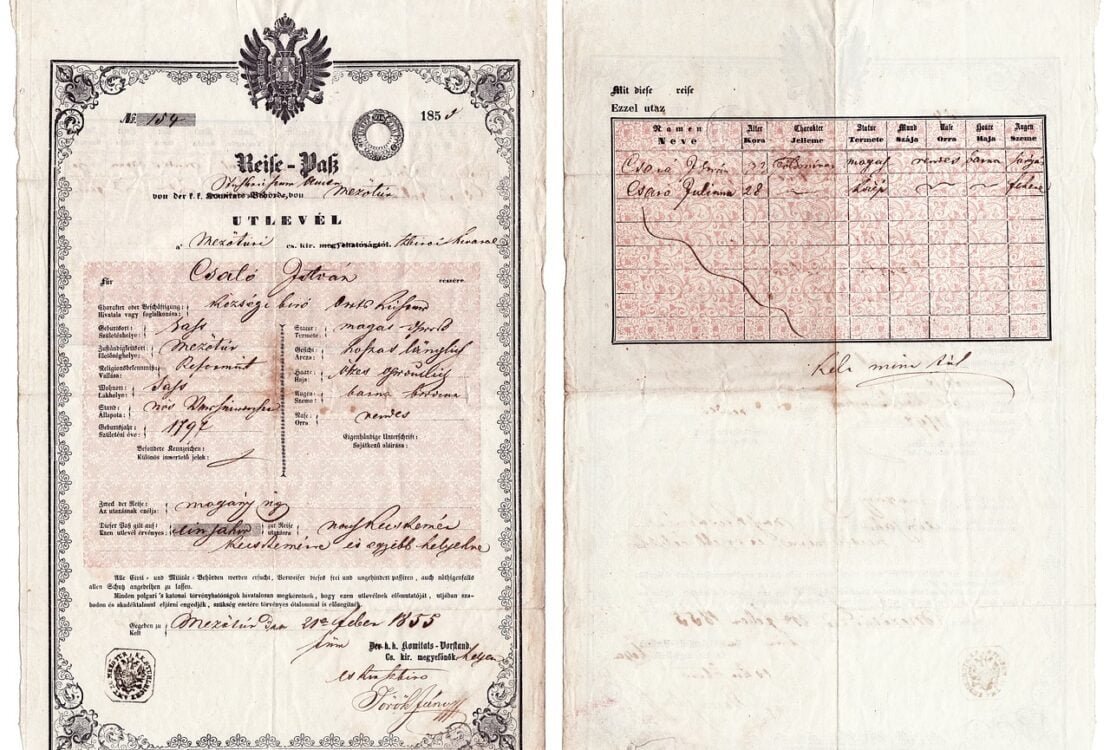 № 154
185 5
Reise-Paß
von der k. k. Komitats-Behörde, von Mezőtúr
UTLEVÉL
a' Mezőturi cs. kir. megyehatóságtól.
Für Csaló István részére.
Charakter oder Beschäftigung: községi biró
Hivatala vagy foglalkozása:
Geburtsort: Sass
Születéshelye:
Zuständigkeitsort: Mezőtúr
Illetőséghelye:
Religionsbekenntniß: Reformat
Vallása:
Wohnort: Sass
Lakhelye:
Stand: nős
Állapota:
Geburtsjahr: 1797
Születési éve:
Besondere Kennzeichen:
Különös ismertető jelek:
Statur: magas
Termete:
Gesicht: hosszas länglich
Arcza:
Haare: őszes
Haja:
Augen: barna
Szeme:
Nase: rendes
Orra
Eigenhändige Unterschrift:
Sajátkezű aláirása:
Zweck der Reise: magány üg
Az utazásnak czélja:
Dieser Paß gilt auf: ein Jahr zur Reise nach Kecskemét
Ezen utlevél érvényes: utazásra
Kecskemétre és egyébb helyekre
Alle Civil- und Militär-Behörden werden ersucht, Vorweiser dieses frei und ungehindert passiren, auch nöthigenfalls
allen Schutz angedeihen zu lassen.
Minden polgári 's katonai törvényhatóságok hivatalosan megkéretnek, hogy ezen utlevélnek előmutatóját, utjában sza-
badon és akadéktalanul eljárni engedjék, szükség esetére törvényes ótalommal is elősegitsék.
Gegeben zu Mezőtúr den 21 Feber 1855
Kelt
Der k. k. Komitats-Vorstand.
Cs. kir. megyefőnök. helyen
Török János
Mit diese reise
Ezzel utaz
Namen Alter Charakter Statur Mund Nase Haare Augen
Neve Kora Jelleme Termete Szája Orra Haja Szeme
Csaló István magas rendes barna
Csaló Julianna 28 közép
kelt mint túl